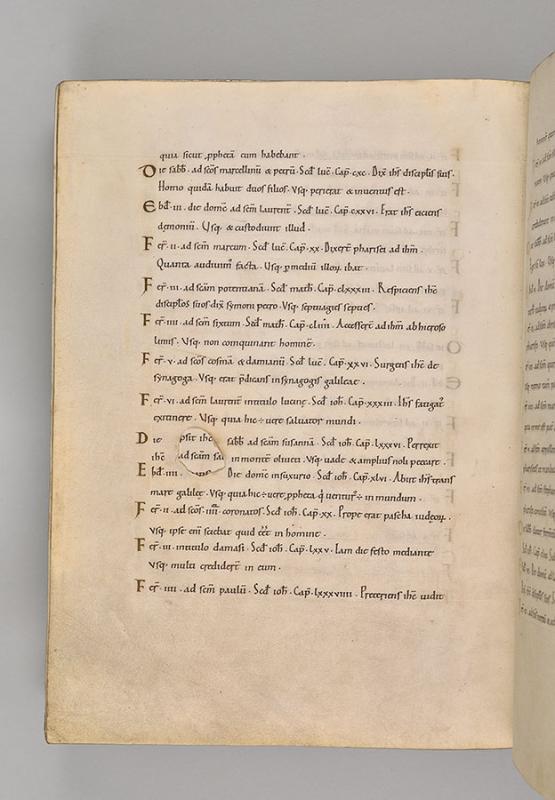 quia sicut ꝓphetā eum habebant.
Die sabb̄. ad sc̄os marcellinū & petrū. Scd̄ luc̄. Cap̄. cxc. Dix̄ ih̄s discipulis suis.
Homo quidā habuit duos filios. Usq; perierat & inventus est.
Ebd̄. iii. die domc̄. ad sc̄m laurent̄. Scd̄ luc̄. Cap̄. cxxvi. Erat ih̄s eiciens
demoniū. Usq; & custodiunt illud.
Fer̄. ii. ad sc̄m marcum. Scd̄ luc̄. Cap̄. xx. Dixer̄ pharisei ad ih̄m.
Quanta audivim' facta. Usq; ꝑ mediū illoꝝ ibat.
Fer̄. iii. ad sc̄am potentianā. Scd̄ math̄. Cap̄. clxxxiii. Respiciens ih̄s
discipłos suos dix̄ symoni petro. Usq; septuagies septies.
Fer̄. iiii. ad sc̄m sixtum. Scd̄ math̄. Cap̄. cliiii. Accesser̄ ad ih̄m ab hieroso
limis. Usq; non coinquinant hominē.
Fer̄. v. ad sc̄os cosmā & damianū. Scd̄ luc̄. Cap̄. xxvi. Surgens ih̄s de
synagoga. Usq; erat p̄dicans in synagogis galileae.
Fer̄. vi. ad sc̄m laurent̄ intitulo lucinę. Scd̄ ioh̄. Cap̄. xxxiii. Ih̄s fatigat'
ex itinere. Usq; quia hic ÷ vere salvator mundi.
Die sabb̄ ad sc̄am susannā. Scd̄ ioh̄. Cap̄. lxxxvi. Perrexit
ih̄s in monte oliveti. Usq; vade & amplius noli peccare.
Ebd̄. iiii. Die domc̄ in suxurio. Scd̄ ioh̄. Cap̄. xlvi. Abiit ih̄s trans
mare galileę. Usq; quia hic ÷ vere ꝓpheta q̇ ventur' ÷ in mundum.
Fer̄. ii. ad sc̄os. iiii. coronatos. Scd̄ ioh̄. Cap̄. xx. Prope erat pascha iudęoꝝ.
Usq; ipse eni sciebat quid eēt in homine.
Fer̄. iii. intitulo damasi. Scd̄ ioh̄. Cap̄. lxxv. Iam die festo mediante
Usq; multi credider̄ in eum.
Fer̄. iiii. ad sc̄m paulū. Scd̄ ioh̄. Cap̄. lxxxviiii. Preteriens ih̄s vidit